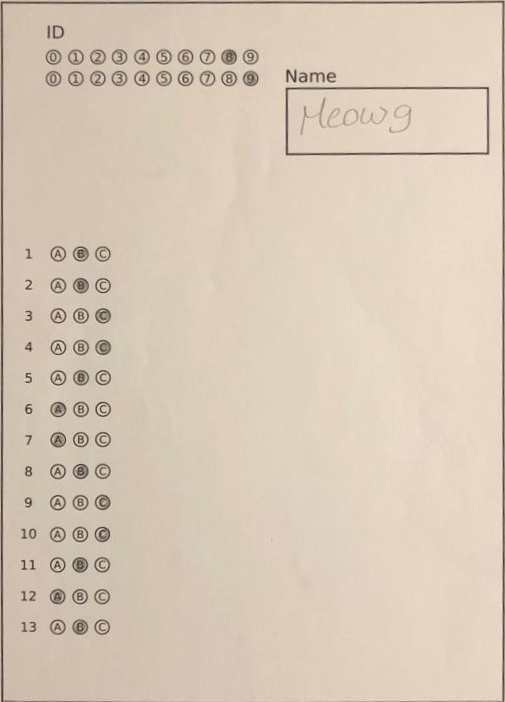 ID
0 1 2 3 4 5 6 7 8 9
0 1 2 3 4 5 6 7 8 9
Name
Meowg
1 A B C
2 A B C
3 A B C
4 A B C
5 A B C
6 A B C
7 A B C
8 A B C
9 A B C
10 A B C
11 A B C
12 A B C
13 A B C